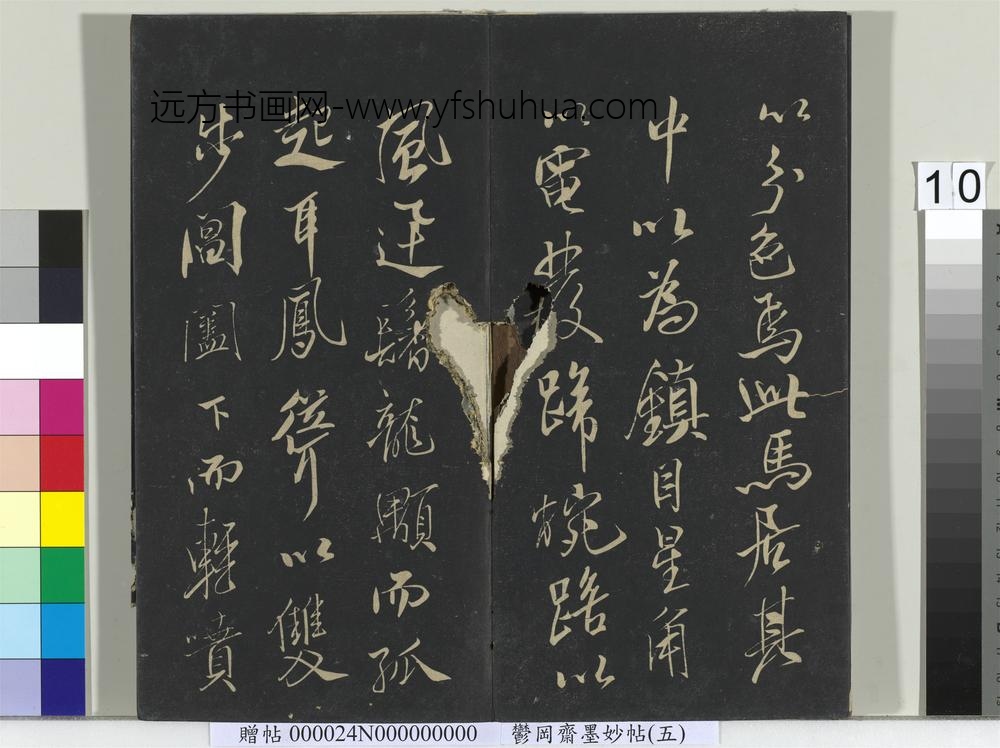 以分色焉此馬居其
中以為鎮目星角
以電發蹄椀踣以
風迅鬐龍顒而孤
起耳鳳聳以雙
步閶闔下而輕噴
远方书画网-www.yfshuhua.com
10
贈帖 000024N000000000 鬱岡齋墨妙帖(五)